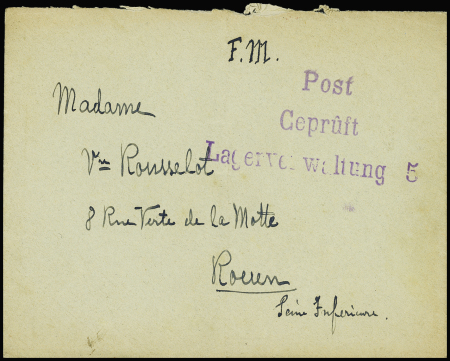 F.M.
Post
Geprüft
Lagerverwaltung 5
Madame
Vve Rousselot
8 Rue Verte de la Motte
Rouen
Seine Inferieure.